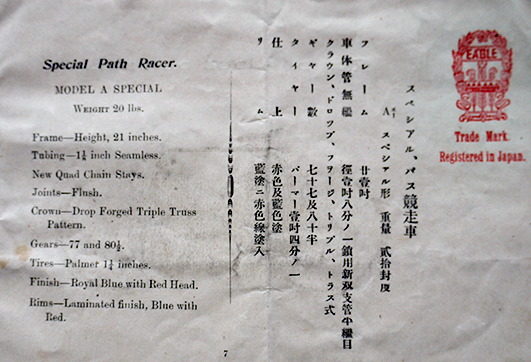 Special Path Racer.
MODEL A SPECIAL
WEIGHT 20 lbs.
Frame—Height, 21 inches.
Tubing—1⅛ inch Seamless.
New Quad Chain Stays.
Joints—Flush.
Crown—Drop Forged Triple Truss
Pattern.
Gears—77 and 80½.
Tires—Palmer 1¼ inches.
Finish—Royal Blue with Red Head.
Rims—Laminated finish, Blue with
Red.
EAGLE
Trade Mark.
Registered in Japan.
スペシアル、パス競走車
A スペシアル形 重量 貳拾封度
フレーム 廿壹吋
車体管無繼 徑壹吋八分ノ一鎖用新双支管平繼目
クラウン、ドロツプ、フヲージ、トリプル、トラス式
ギヤー數 七十七及八十半
タイヤー パーマー壹吋四分ノ一
仕上 赤色及藍色塗
リム 藍塗ニ赤色線塗入
7